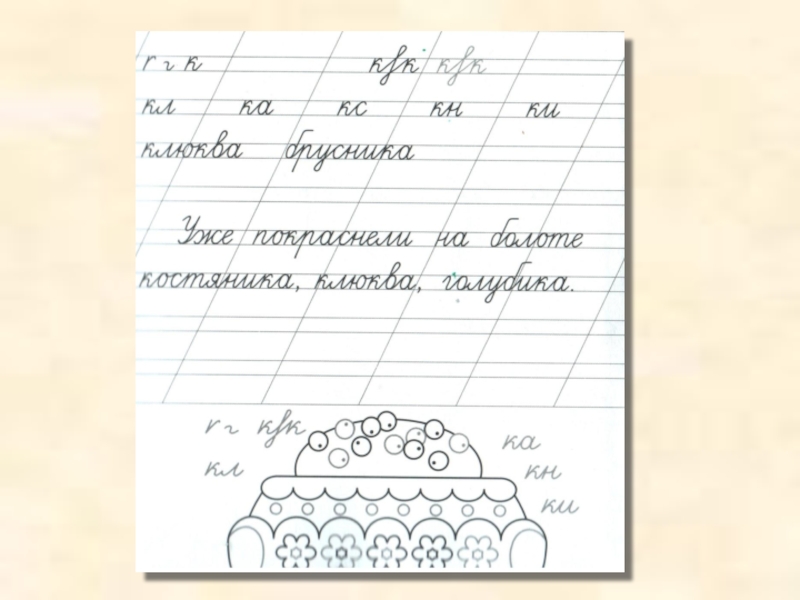 г г к кfк кfк
кл ка кс кн ки
клюква брусника
Уже покраснели на болоте
костяника, клюква, голубика.
г г кfк ка
кл кн
ки